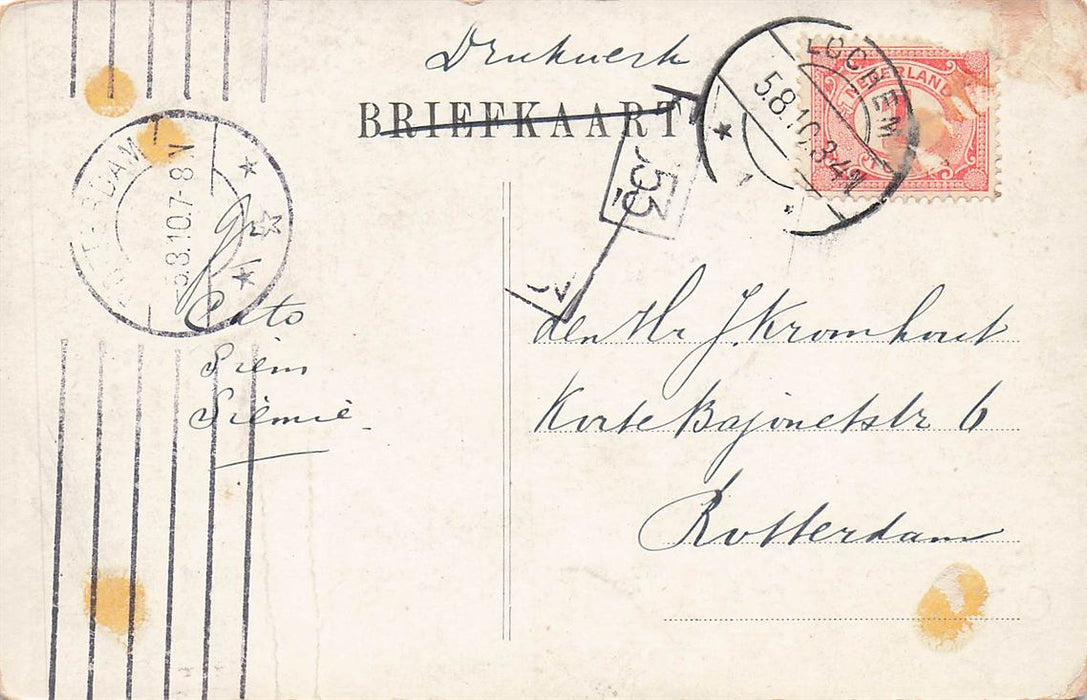 Drukwerk
BRIEFKAART
LOCHEM
5.8.10.3-4N
1
NEDERLAND
53
ROTTERDAM
5.8.10.7-8N
Cato
Siem
Siemie
den Hr J. Kromhout
Korte Bajonetstr 6
Rotterdam